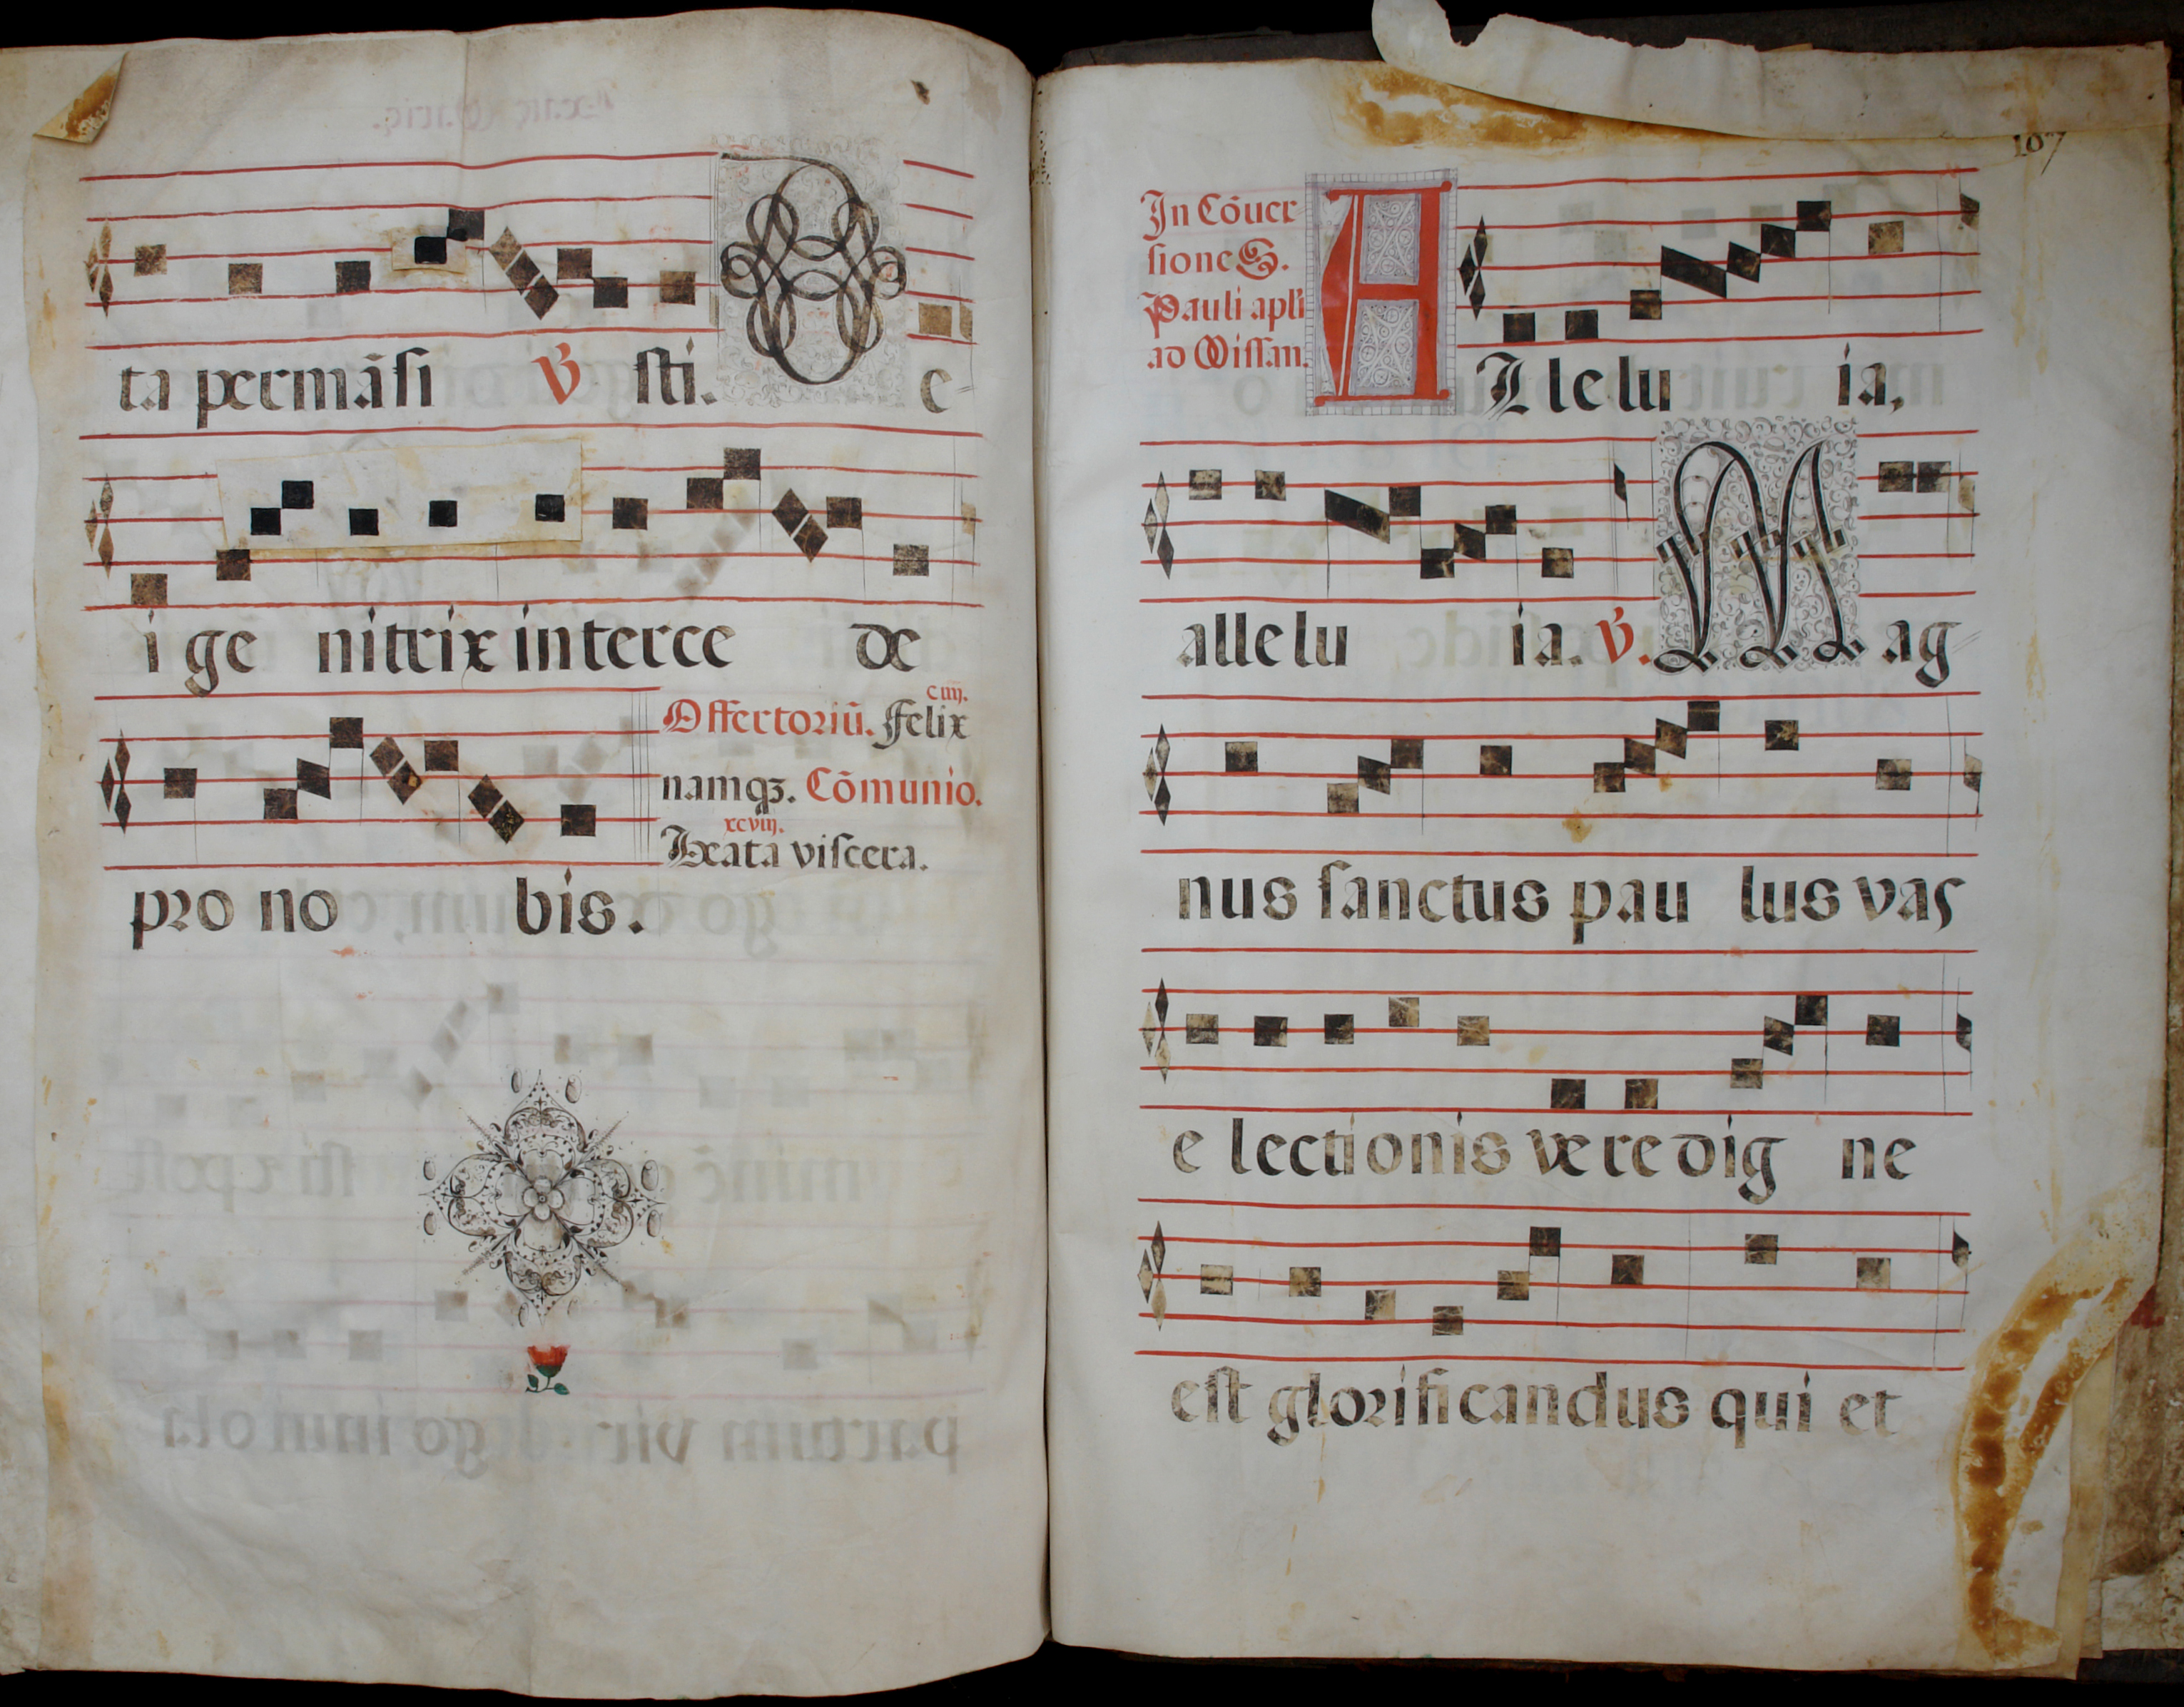 ta permãsi ℣ sti. De
i ge nitrix interce de
ciiij.
Offertoriũ. Felix
namqꝫ. Cõmunio.
xcviij.
Beata viscera.
pro no bis.
107
In Cõver
sione S.
Pauli apľi
ad Missam.
ALle lu ia,
alle lu ia. ℣. Mag
nus sanctus pau lus vas
e lectionis ve re dig ne
est glorificandus qui et